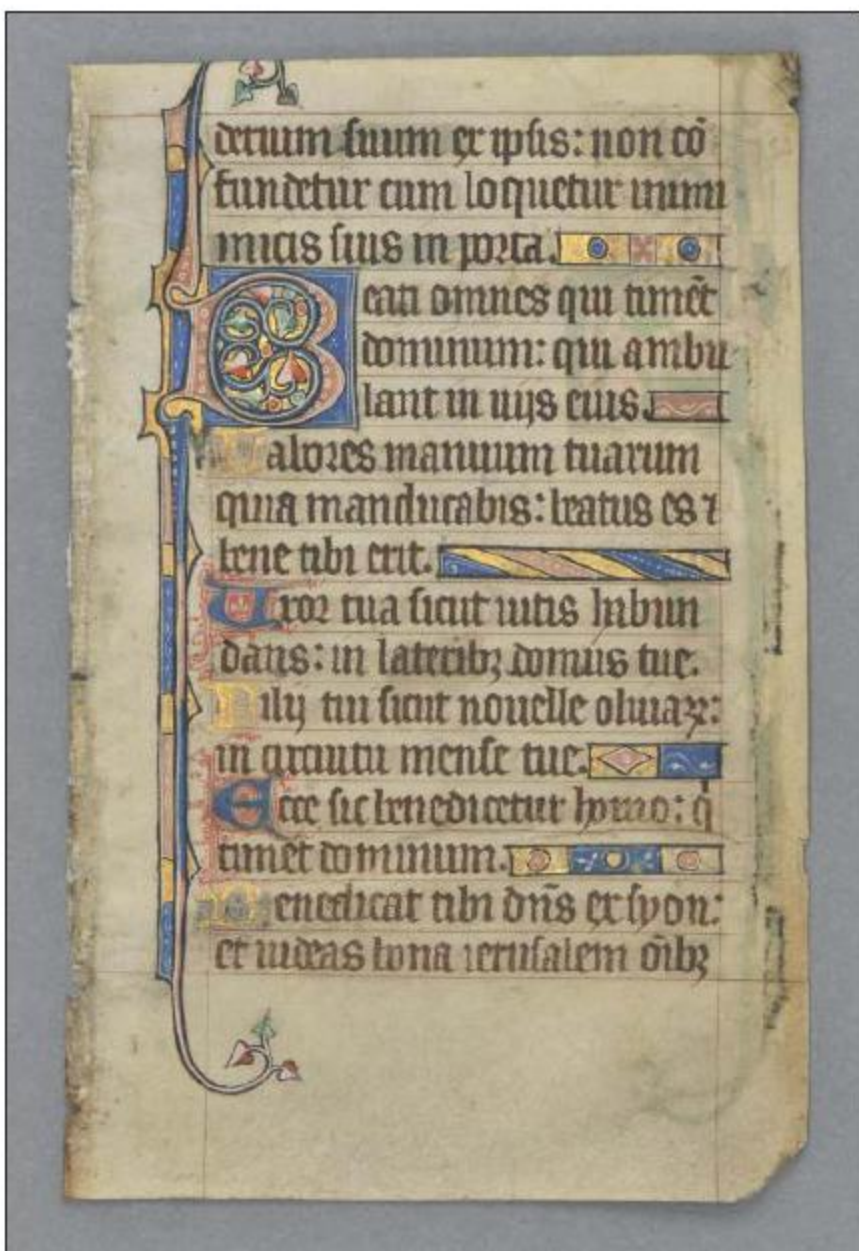 derium suum ex ipsis: non cō
fundetur cum loquetur inimi
micis suis in porta.
Beati omnes qui timēt
dominum: qui ambu
lant in uijs eius.
Labores manuum tuarum
quia manducabis: beatus es ⁊
bene tibi erit.
Uxor tua sicut uitis habun
dans: in lateribꝫ domus tue.
Filij tui sicut nouelle oliuaꝝ:
in circuitu mense tue.
Ecce sic benedicetur homo: q̇
timet dominum.
Benedicat tibi dn̄s ex syon:
et uideas bona ierusalem om̄ibꝫ